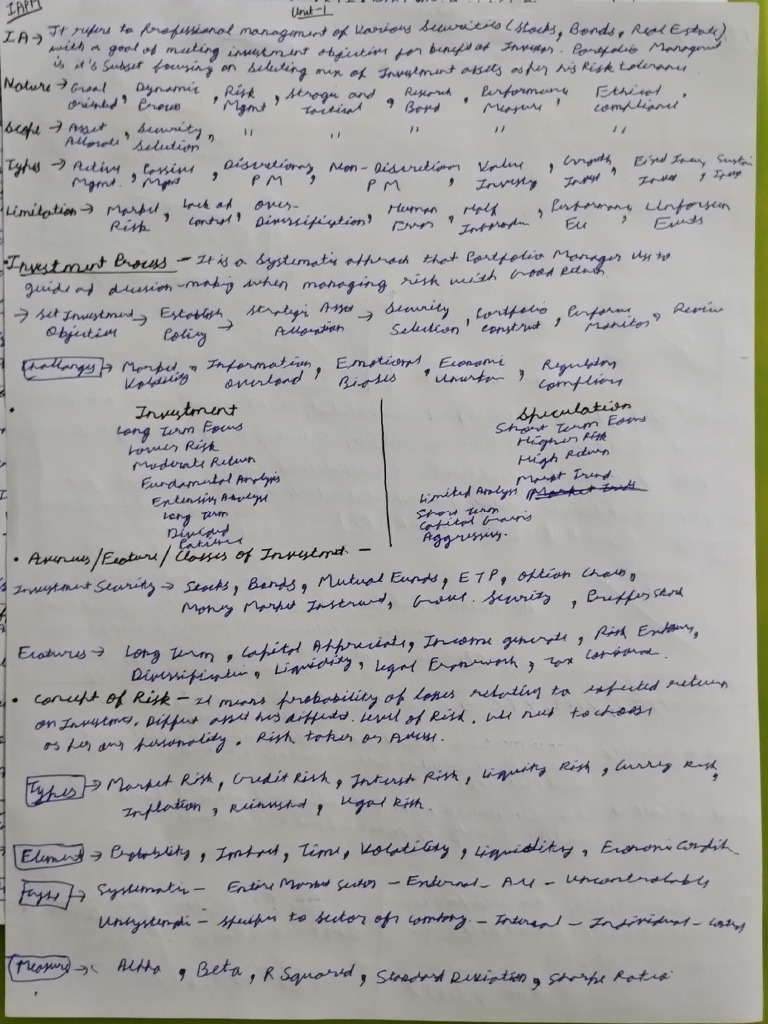 IAPM
Unit-1
IA → It refers to Professional management of Various Securities (Stocks, Bonds, Real Estate)
with a goal of meeting investment objective for benefit of Investor. Portfolio Managmt
is it's Subset focusing on Selecting mix of Investment assets as per his Risk tolerance
Nature → Goal oriented, Dynamic Process, Risk Mgmt, Stragic and Tactical, Research Based, Performance Measure, Ethical compliance.
Scope → Asset Allocate, Security Selection, " " " " "
Types → Active Mgmt, Passive Mgmt, Discretionary PM, Non-Discretion PM, Value Investg, Growth Invest, Fixed Incom Invest, Sustain Invest
Limitation → Market Risk, Lack of Control, Over-Diversification, Human Error, Performance Unforseen Events
• Investment Process – It is a Systematic approach that Portfolio Manager use to
guided decision-making when managing risk with Good Return
→ Set Investment Objective → Establish Policy → Strategic Asset Allocation → Security Selection, Portfolio construct, Performe Monitor, Review
Challenges → Market Volatility, Information overload, Emotional Biases, Economic Uncertain, Regulatory Complians
• Investment
Speculation
Long Term Focus
Short Term Focus
Lower Risk
Higher Risk
Moderate Return
High Return
Fundamental Analysis
Market Trend
Extensive Analysis
Limited Analysis
Long Term
Short Term
Dividend
Capital Gains
Patience
Aggressive.
• Avenues/Feature/Classes of Investment. –
Investment Security → Stocks, Bonds, Mutual Funds, ETP, Option Chain,
Money Market Instrumt, Govt. Security, Preffer Stock
Features → Long Term, Capital Appreciate, Income generate, Risk
Diversification, Liquidity, Legal Framework, Tax
• Concept of Risk – It means probability of loses relating to expected return
on Investmen. Differt asset has differt. Level of Risk. we need to choose
as per our personality. Risk taker or Averse.
Types → Market Risk, Credit Risk, Interest Risk, Liquity Risk, Currey Risk,
Inflation, Reinvestd, Legal Risk.
Element → Probability, Impact, Time, Volatility, Liquidity, Economic Conditi
Types → Systematic – Entire Market Sector – External – All – Uncontrolable
Unsystemati – Specific to Sector or company – Internal – Individual – Control
Measure → Alpha, Beta, R Squared, Standard Deviation, Sharpe Ratio